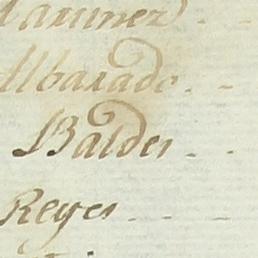 Martinez
Albarado
Baldes
Reyes